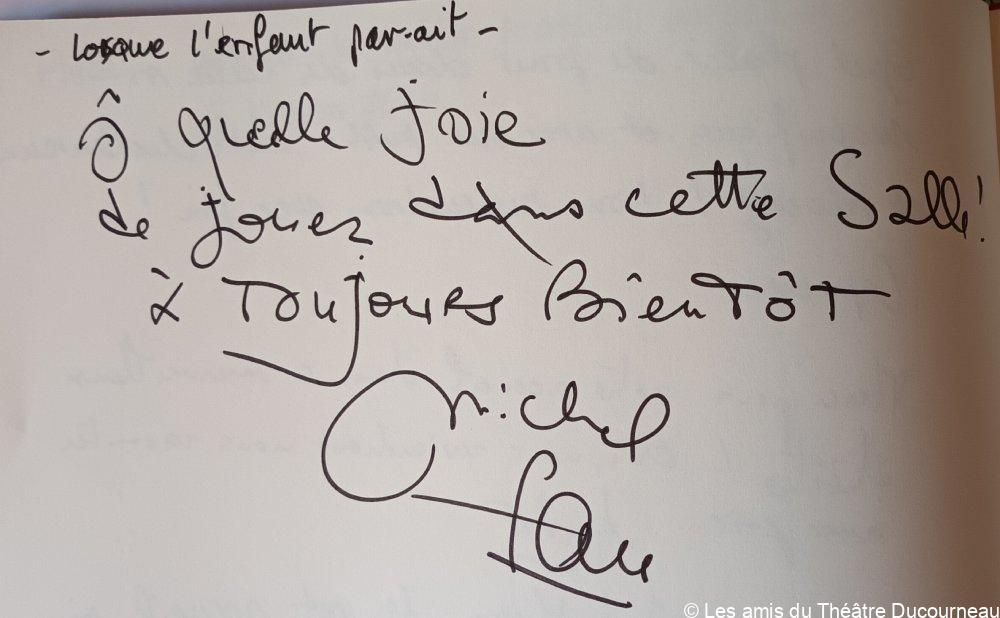 - Lorsque l'enfant paraît -
Ô quelle Joie
de jouer dans cette Salle !
à Toujours BienTôT
Michel
Fau
© Les amis du Théâtre Ducourneau